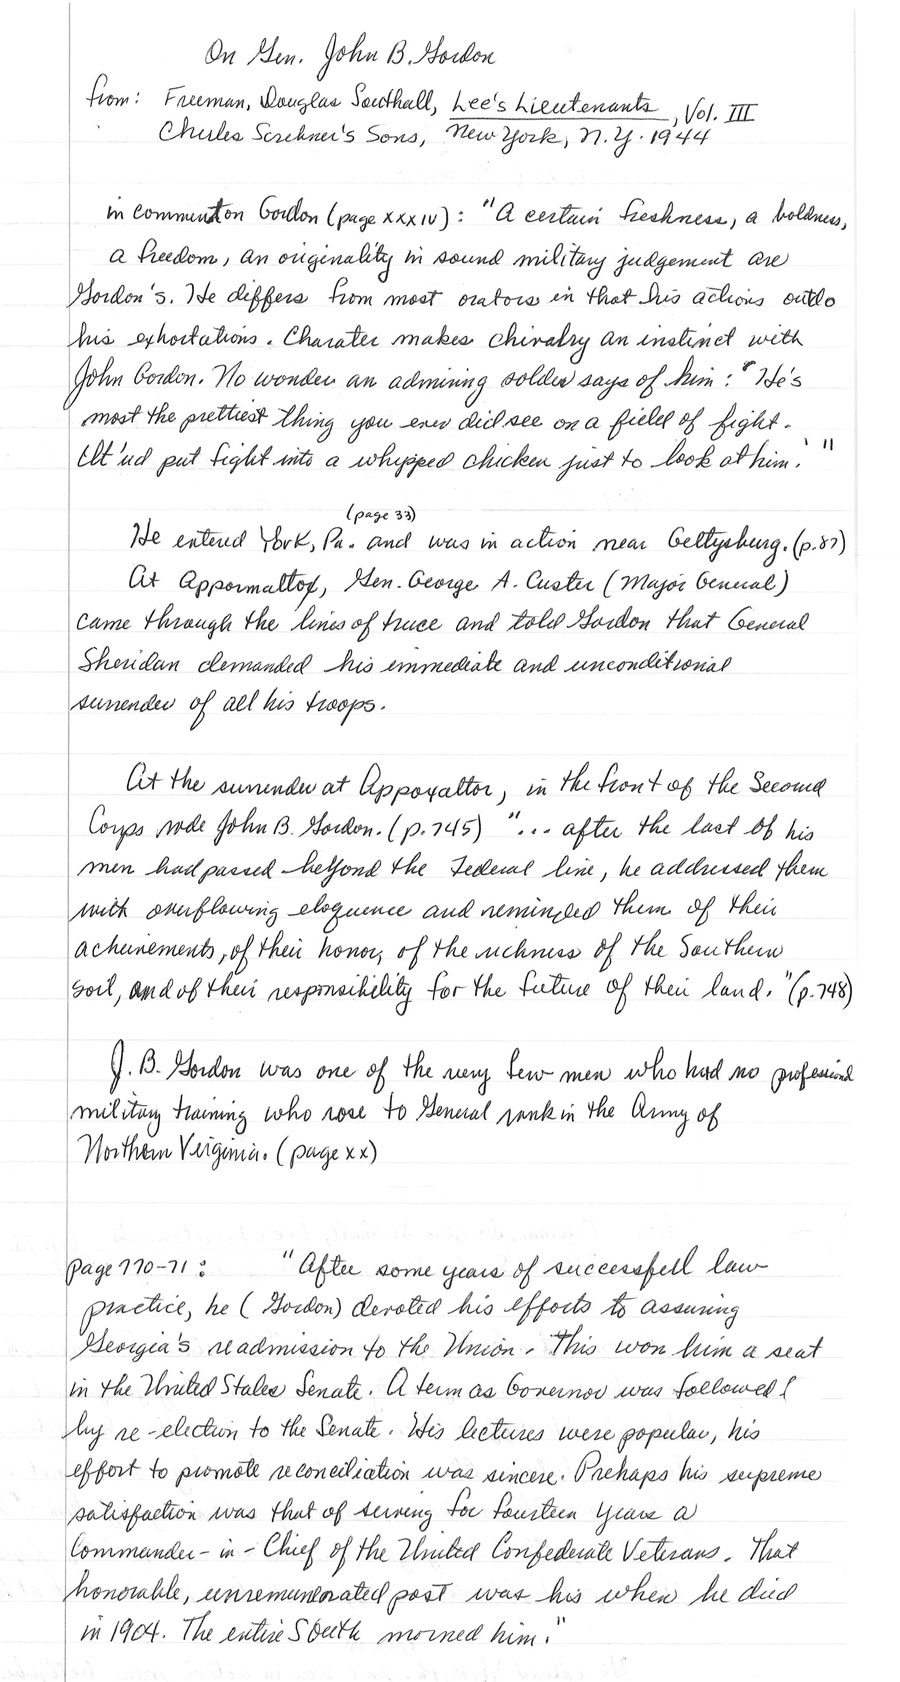 On Gen. John B. Gordon
from: Freeman, Douglas Southall, Lee's Lieutenants, Vol. III
Charles Scribner's Sons, New York, N.Y. 1944
in comment on Gordon (page xxxiv): "A certain freshness, a boldness,
a freedom, an originality in sound military judgement are
Gordon's. He differs from most orators in that his actions outdo
his exhortations. Charater makes chivalry an instinct with
John Gordon. No wonder an admiring soldier says of him: 'He's
most the prettiest thing you ever did see on a field of fight.
It'ud put fight into a whipped chicken just to look at him.' "
(page 33)
He entered York, Pa. and was in action near Gettysburg. (p.87)
At Appormattox, Gen. George A. Custer (Major General)
came through the lines of truce and told Gordon that General
Sheridan demanded his immediate and unconditional
surrender of all his troops.
At the surrender at Appoxattor, in the front of the Second
Corps rode John B. Gordon. (p.745) "... after the last of his
men had passed beyond the Federal line, he addressed them
with overflowing eloquence and reminded them of their
acheivements, of their honor, of the richness of the Southern
soil, and of their responsibility for the future of their land." (p.748)
J. B. Gordon was one of the very few men who had no professional
military training who rose to General rank in the Army of
Northern Virginia. (page xx)
page 770-71: "After some years of successfull law
practice, he (Gordon) devoted his efforts to assuring
Georgia's readmission to the Union. This won him a seat
in the United States Senate. A term as Governor was followed
by re-election to the Senate. His lectures were popular, his
effort to promote reconciliation was sincere. Prehaps his supreme
satisfaction was that of serving for fourteen years a
Commander-in-Chief of the United Confederate Veterans. That
honorable, unremunerated post was his when he died
in 1904. The entire South morned him."